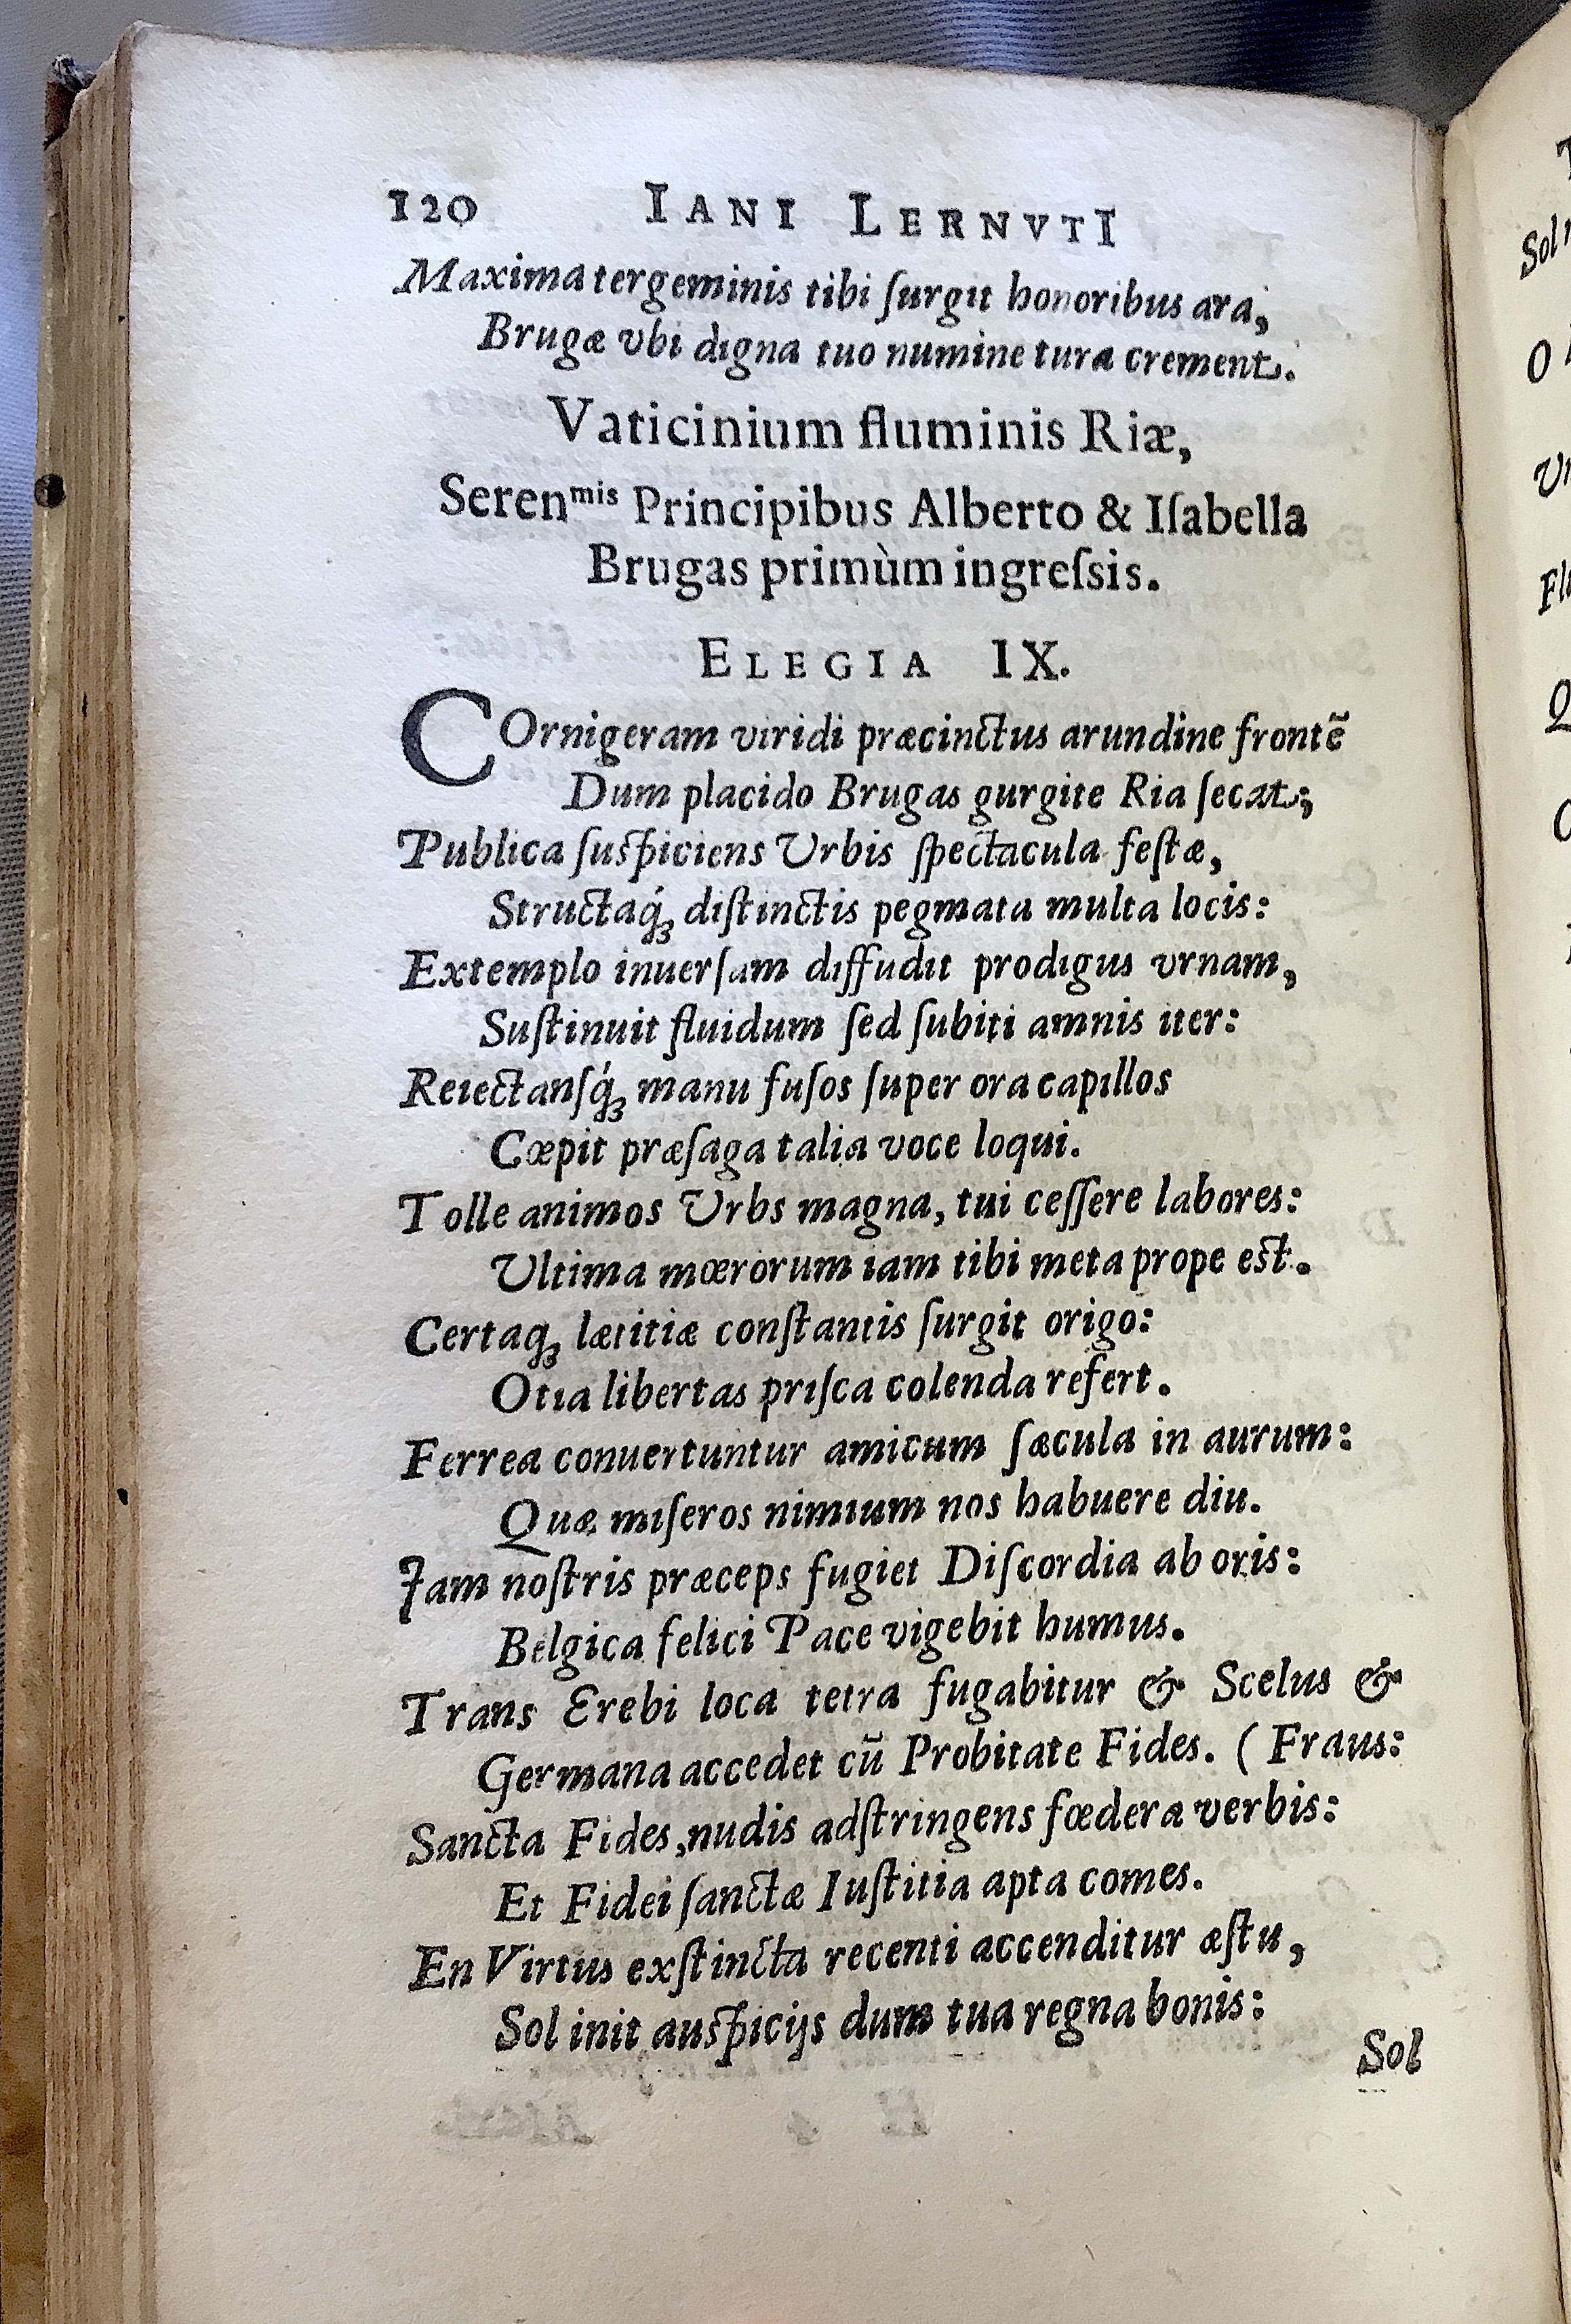 120 IANI LERNVTI
Maxima tergeminis tibi ſurgit honoribus ara,
Brugæ vbi digna tuo numine tura crement.
Vaticinium fluminis Riæ,
Serenmis Principibus Alberto & Iſabella
Brugas primùm ingreſsis.
ELEGIA IX.
COrnigeram viridi præcinctus arundine frontē
Dum placido Brugas gurgite Ria ſecat;
Publica ſuſpiciens Vrbis ſpectacula feſtæ,
Structaq́ꝫ diſtinctis pegmata multa locis:
Extemplo inuerſam diffudit prodigus vrnam,
Suſtinuit fluidum ſed ſubiti amnis iter:
Reiectanſq́ꝫ manu fuſos ſuper ora capillos
Cœpit præſaga talia voce loqui.
Tolle animos Vrbs magna, tui ceſſere labores:
Vltima mœrorum iam tibi meta prope est.
Certaqꝫ lætitiæ conſtantis ſurgit origo:
Otia libertas priſca colenda refert.
Ferrea conuertuntur amicum ſæcula in aurum:
Quæ miſeros nimium nos habuere diu.
Iam noſtris præceps fugiet Diſcordia ab oris:
Belgica felici Pace vigebit humus.
Trans Erebi loca tetra fugabitur & Scelus &
Germana accedet cū Probitate Fides. ( Fraus:
Sancta Fides, nudis adſtringens fœdera verbis:
Et Fidei ſanctæ Iuſtitia apta comes.
En Virtus exſtincta recenti accenditur æſtu,
Sol init auſpicijs dum tua regna bonis:
Sol